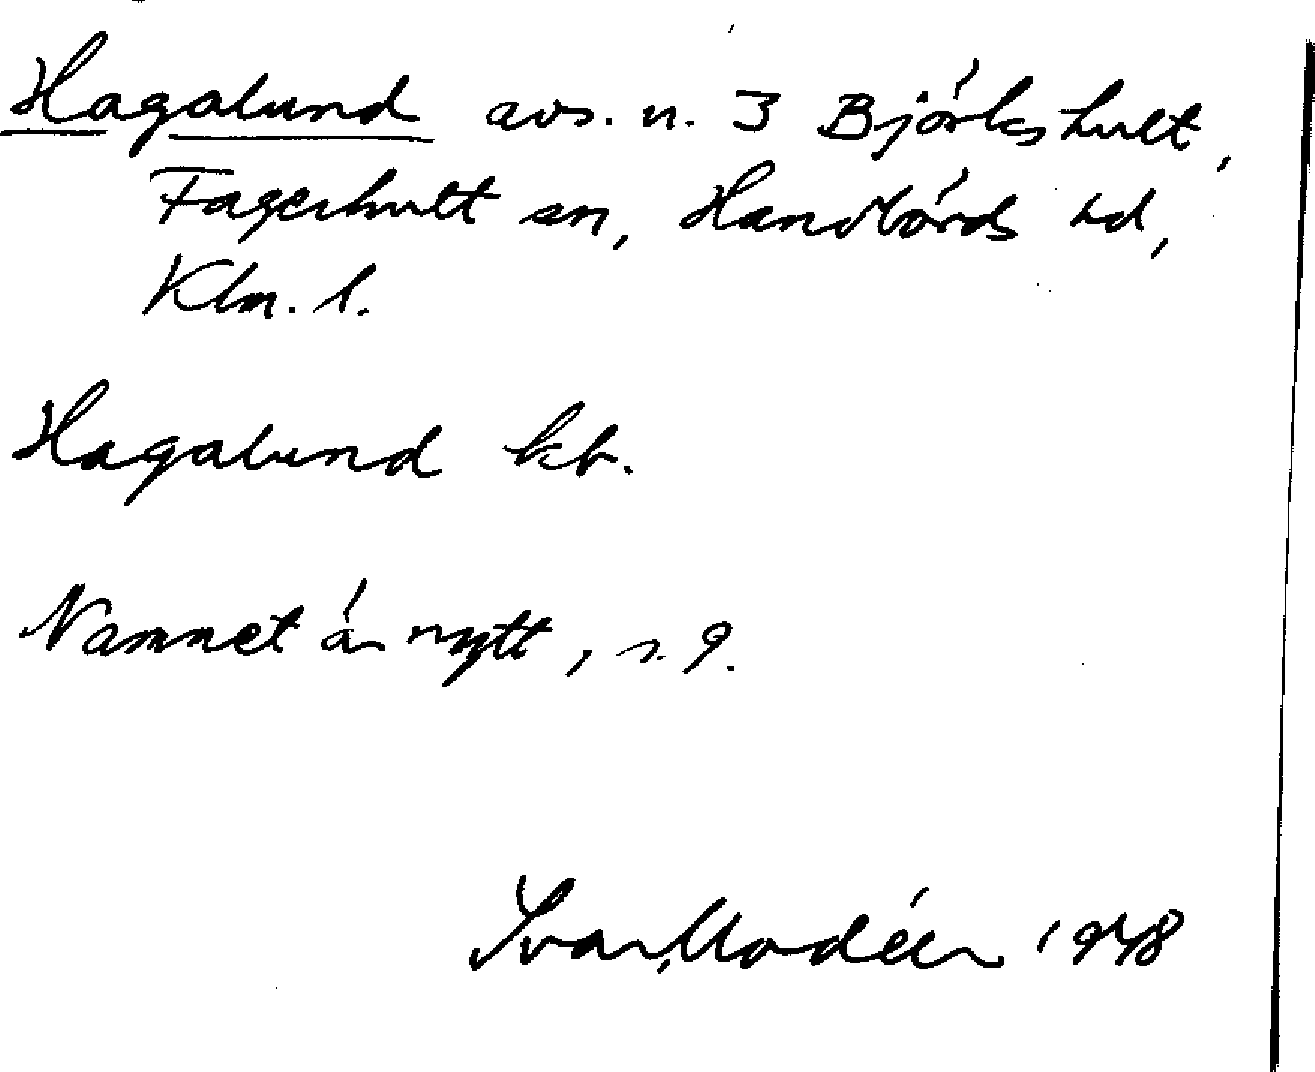 Hagalund avs. n. 3 Björkshult,
Fagerhult sn, Handbörds hd,
Klm. l.
Hagalund kb.
Namnet är nytt, s. 9.
Ivar Modéer 1948